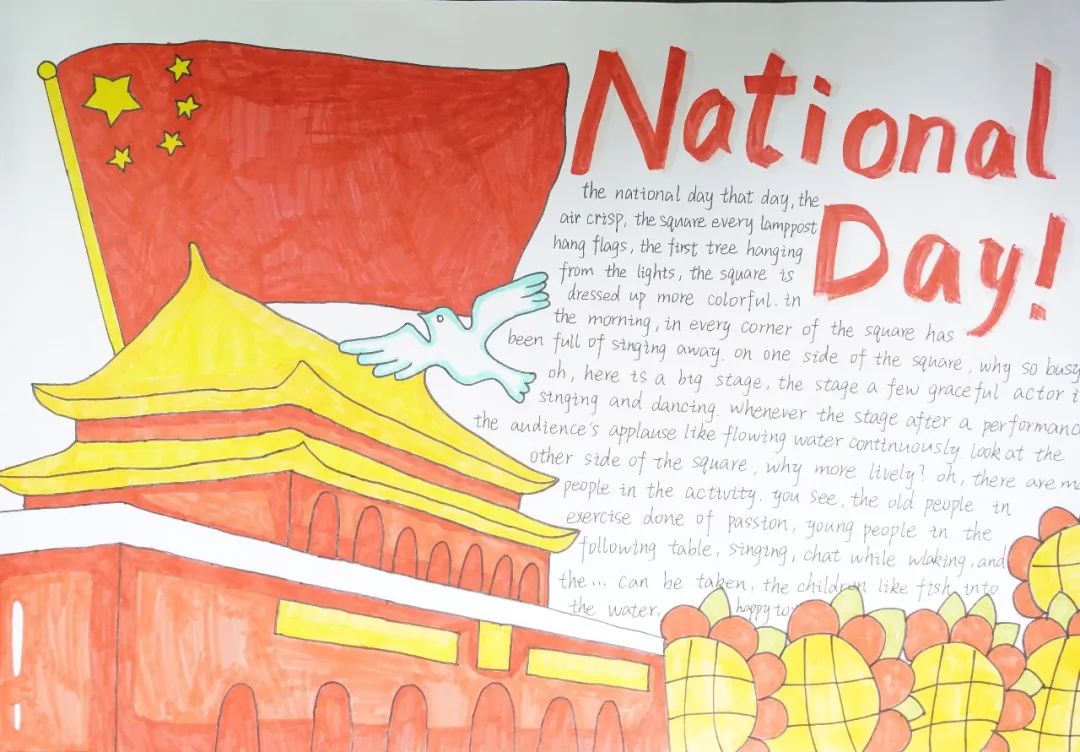 National
Day!
the national day that day, the
air crisp, the square every lamppost
hang flags, the first tree hanging
from the lights, the square is
dressed up more colorful. in
the morning, in every corner of the square has
been full of singing away. on one side of the square, why so busy
oh, here is a big stage, the stage a few graceful actor
singing and dancing. whenever the stage after a performanc
the audience's applause like flowing water continuously. look at the
other side of the square, why more lively? oh, there are
people in the activity. you see, the old people in
exercise done of passion, young people in the
following table, singing, chat while wlaking, and
the... can be taken, the children like fish into
the water, happy to